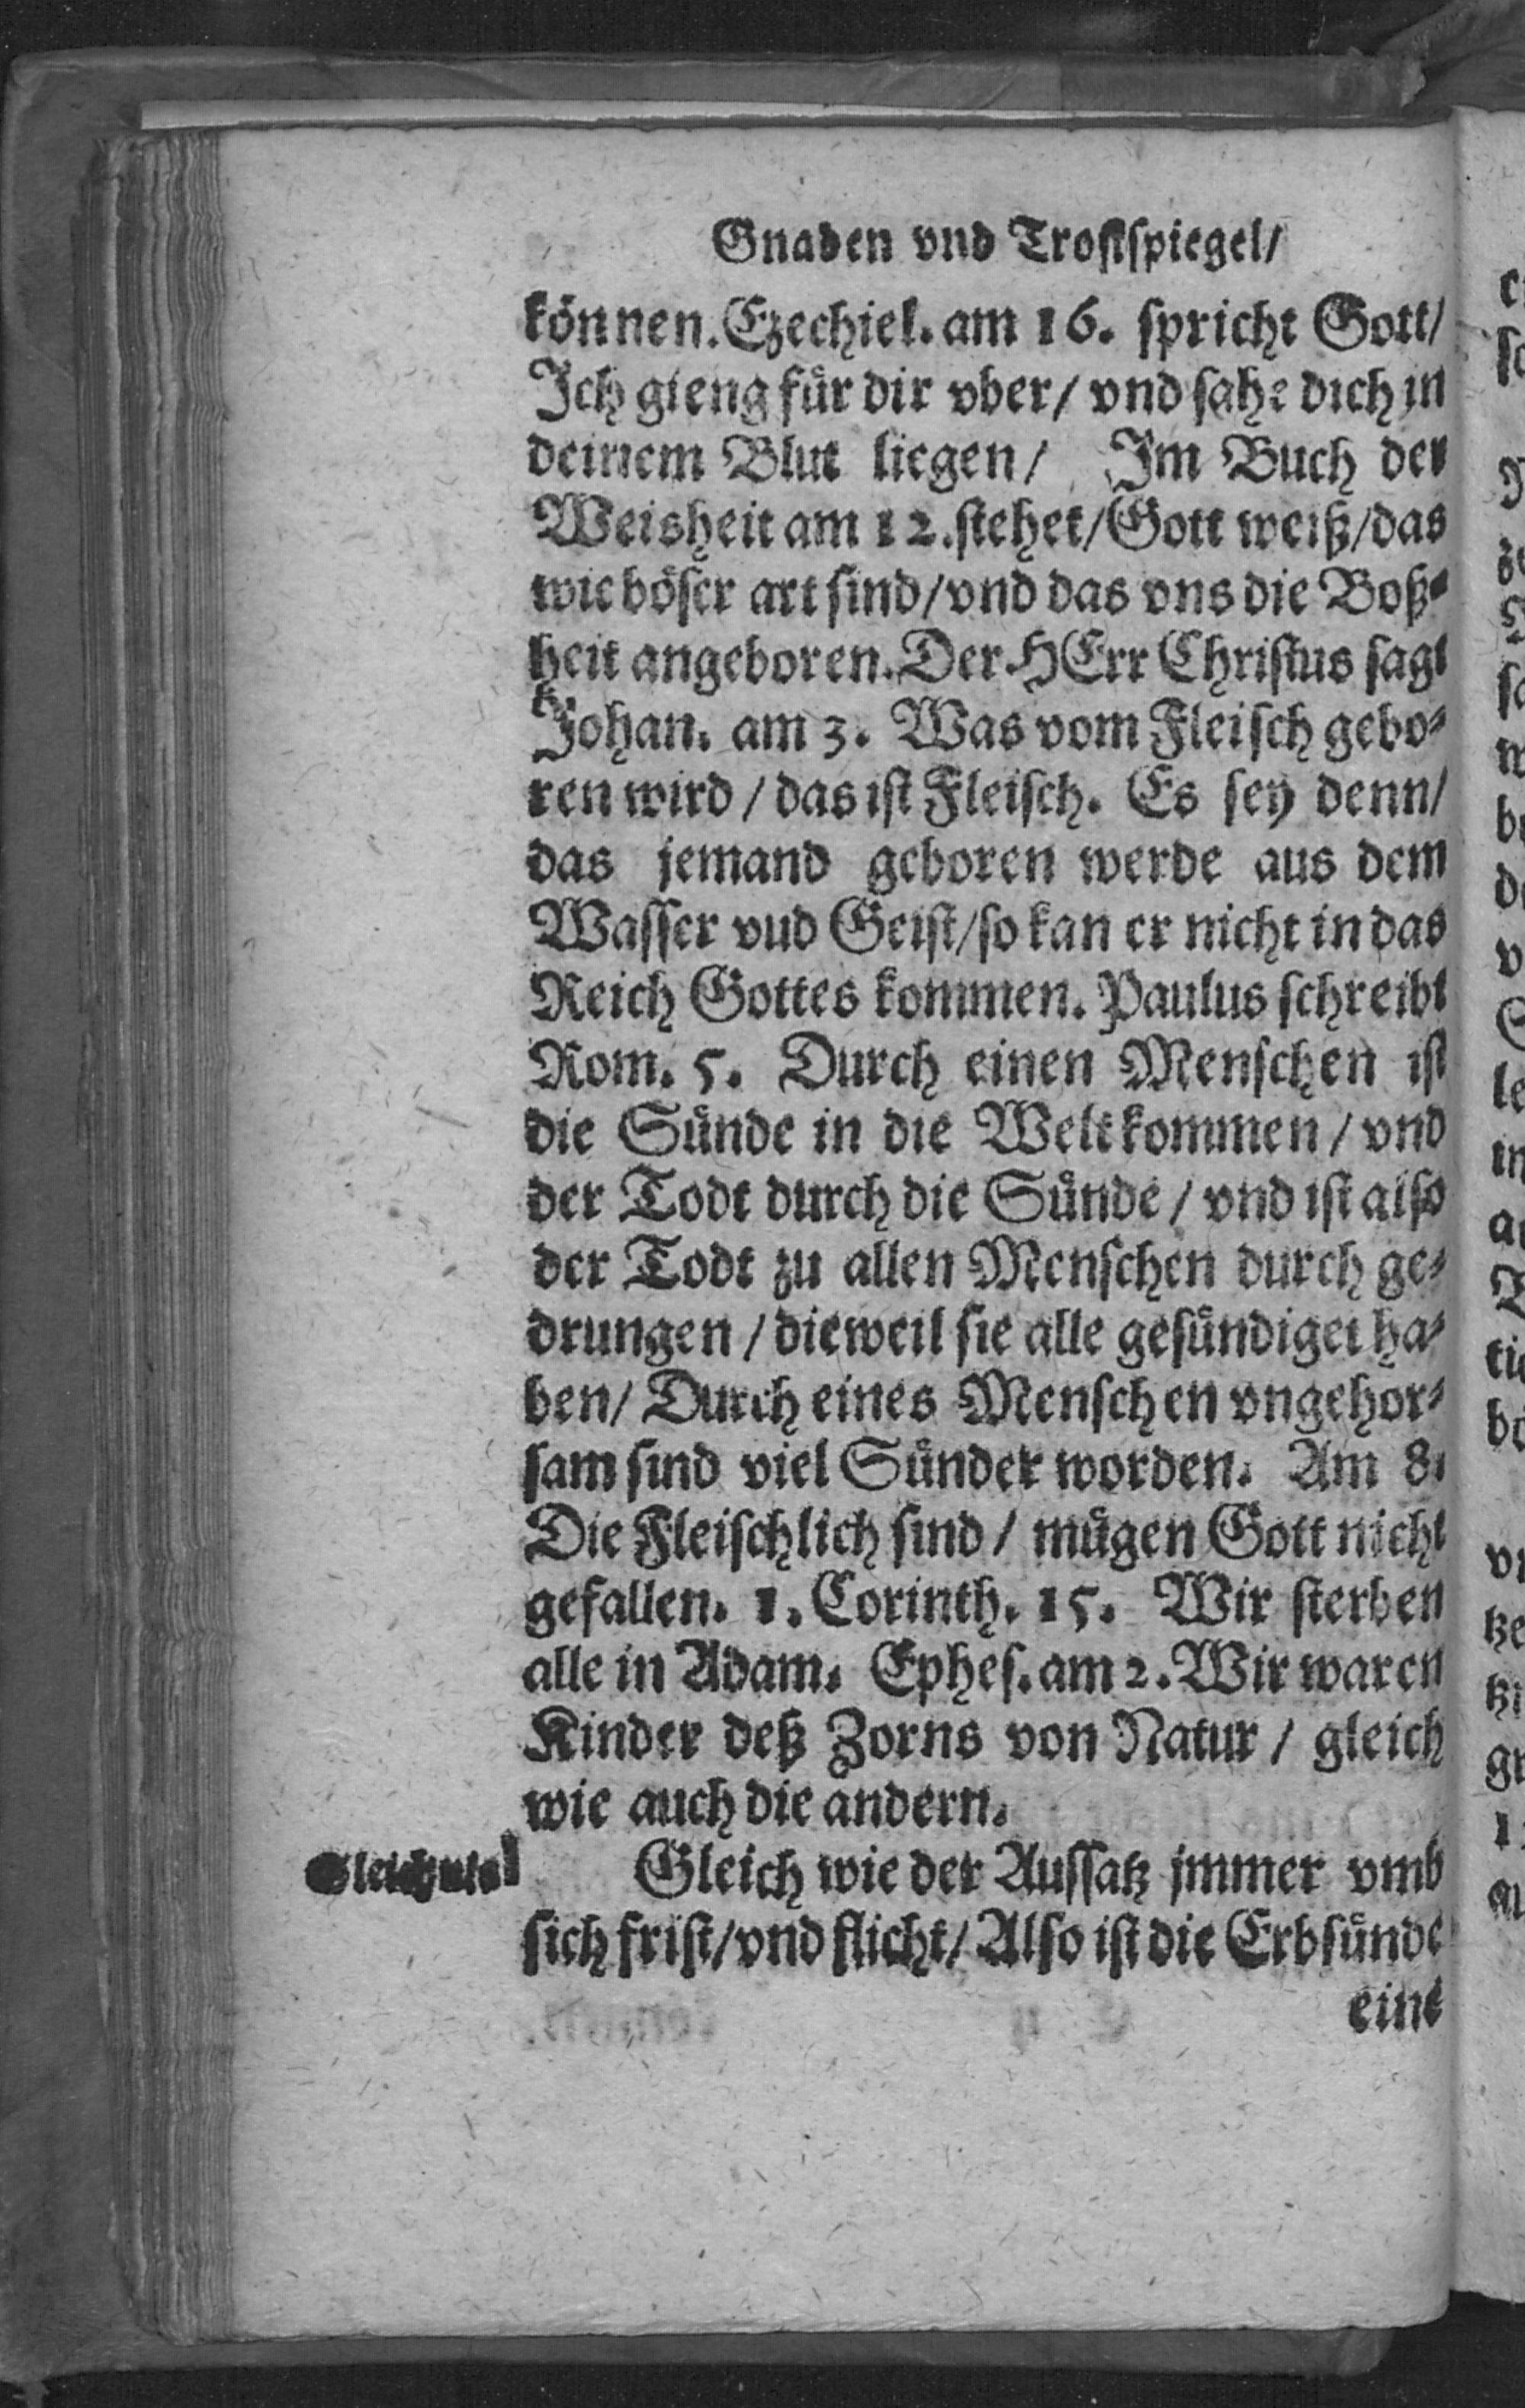 Gnaden vnd Trostspiegel/
können. Ezechiel. am 16. spricht Gott/
Ich gieng für dir vber/ vnd sahe dich in
deinem Blut liegen/ Im Buch der
Weisheit am 12. stehet/Gott weiß/das
wie böser art sind/vnd das vns die Boß-
heit angeboren. Der HErr Christus sagt
Johan. am 3. Was vom Fleisch gebo-
ren wird/ das ist Fleisch. Es sey denn/
das jemand geboren werde aus dem
Wasser vud Geist/so kan er nicht in das
Reich Gottes kommen. Paulus schreibt
Rom. 5. Durch einen Menschen ist
die Sünde in die Welt kommen/ vnd
der Todt durch die Sünde/ vnd ist also
der Todt zu allen Menschen durch ge-
drungen/ dieweil sie alle gesündiget ha-
ben/ Durch eines Menschen vngehor-
sam sind viel Sünder worden. Am 8.
Die Fleischlich sind/ mügen Gott nicht
gefallen. 1. Corinth. 15. Wir sterben
alle in Adam. Ephes. am 2. Wir waren
Kinder deß Zorns von Natur/ gleich
wie auch die andern.
Gleich wie der Aussatz jmmer vmb
sich frist/vnd flicht/ Also ist die Erbsünde
eine